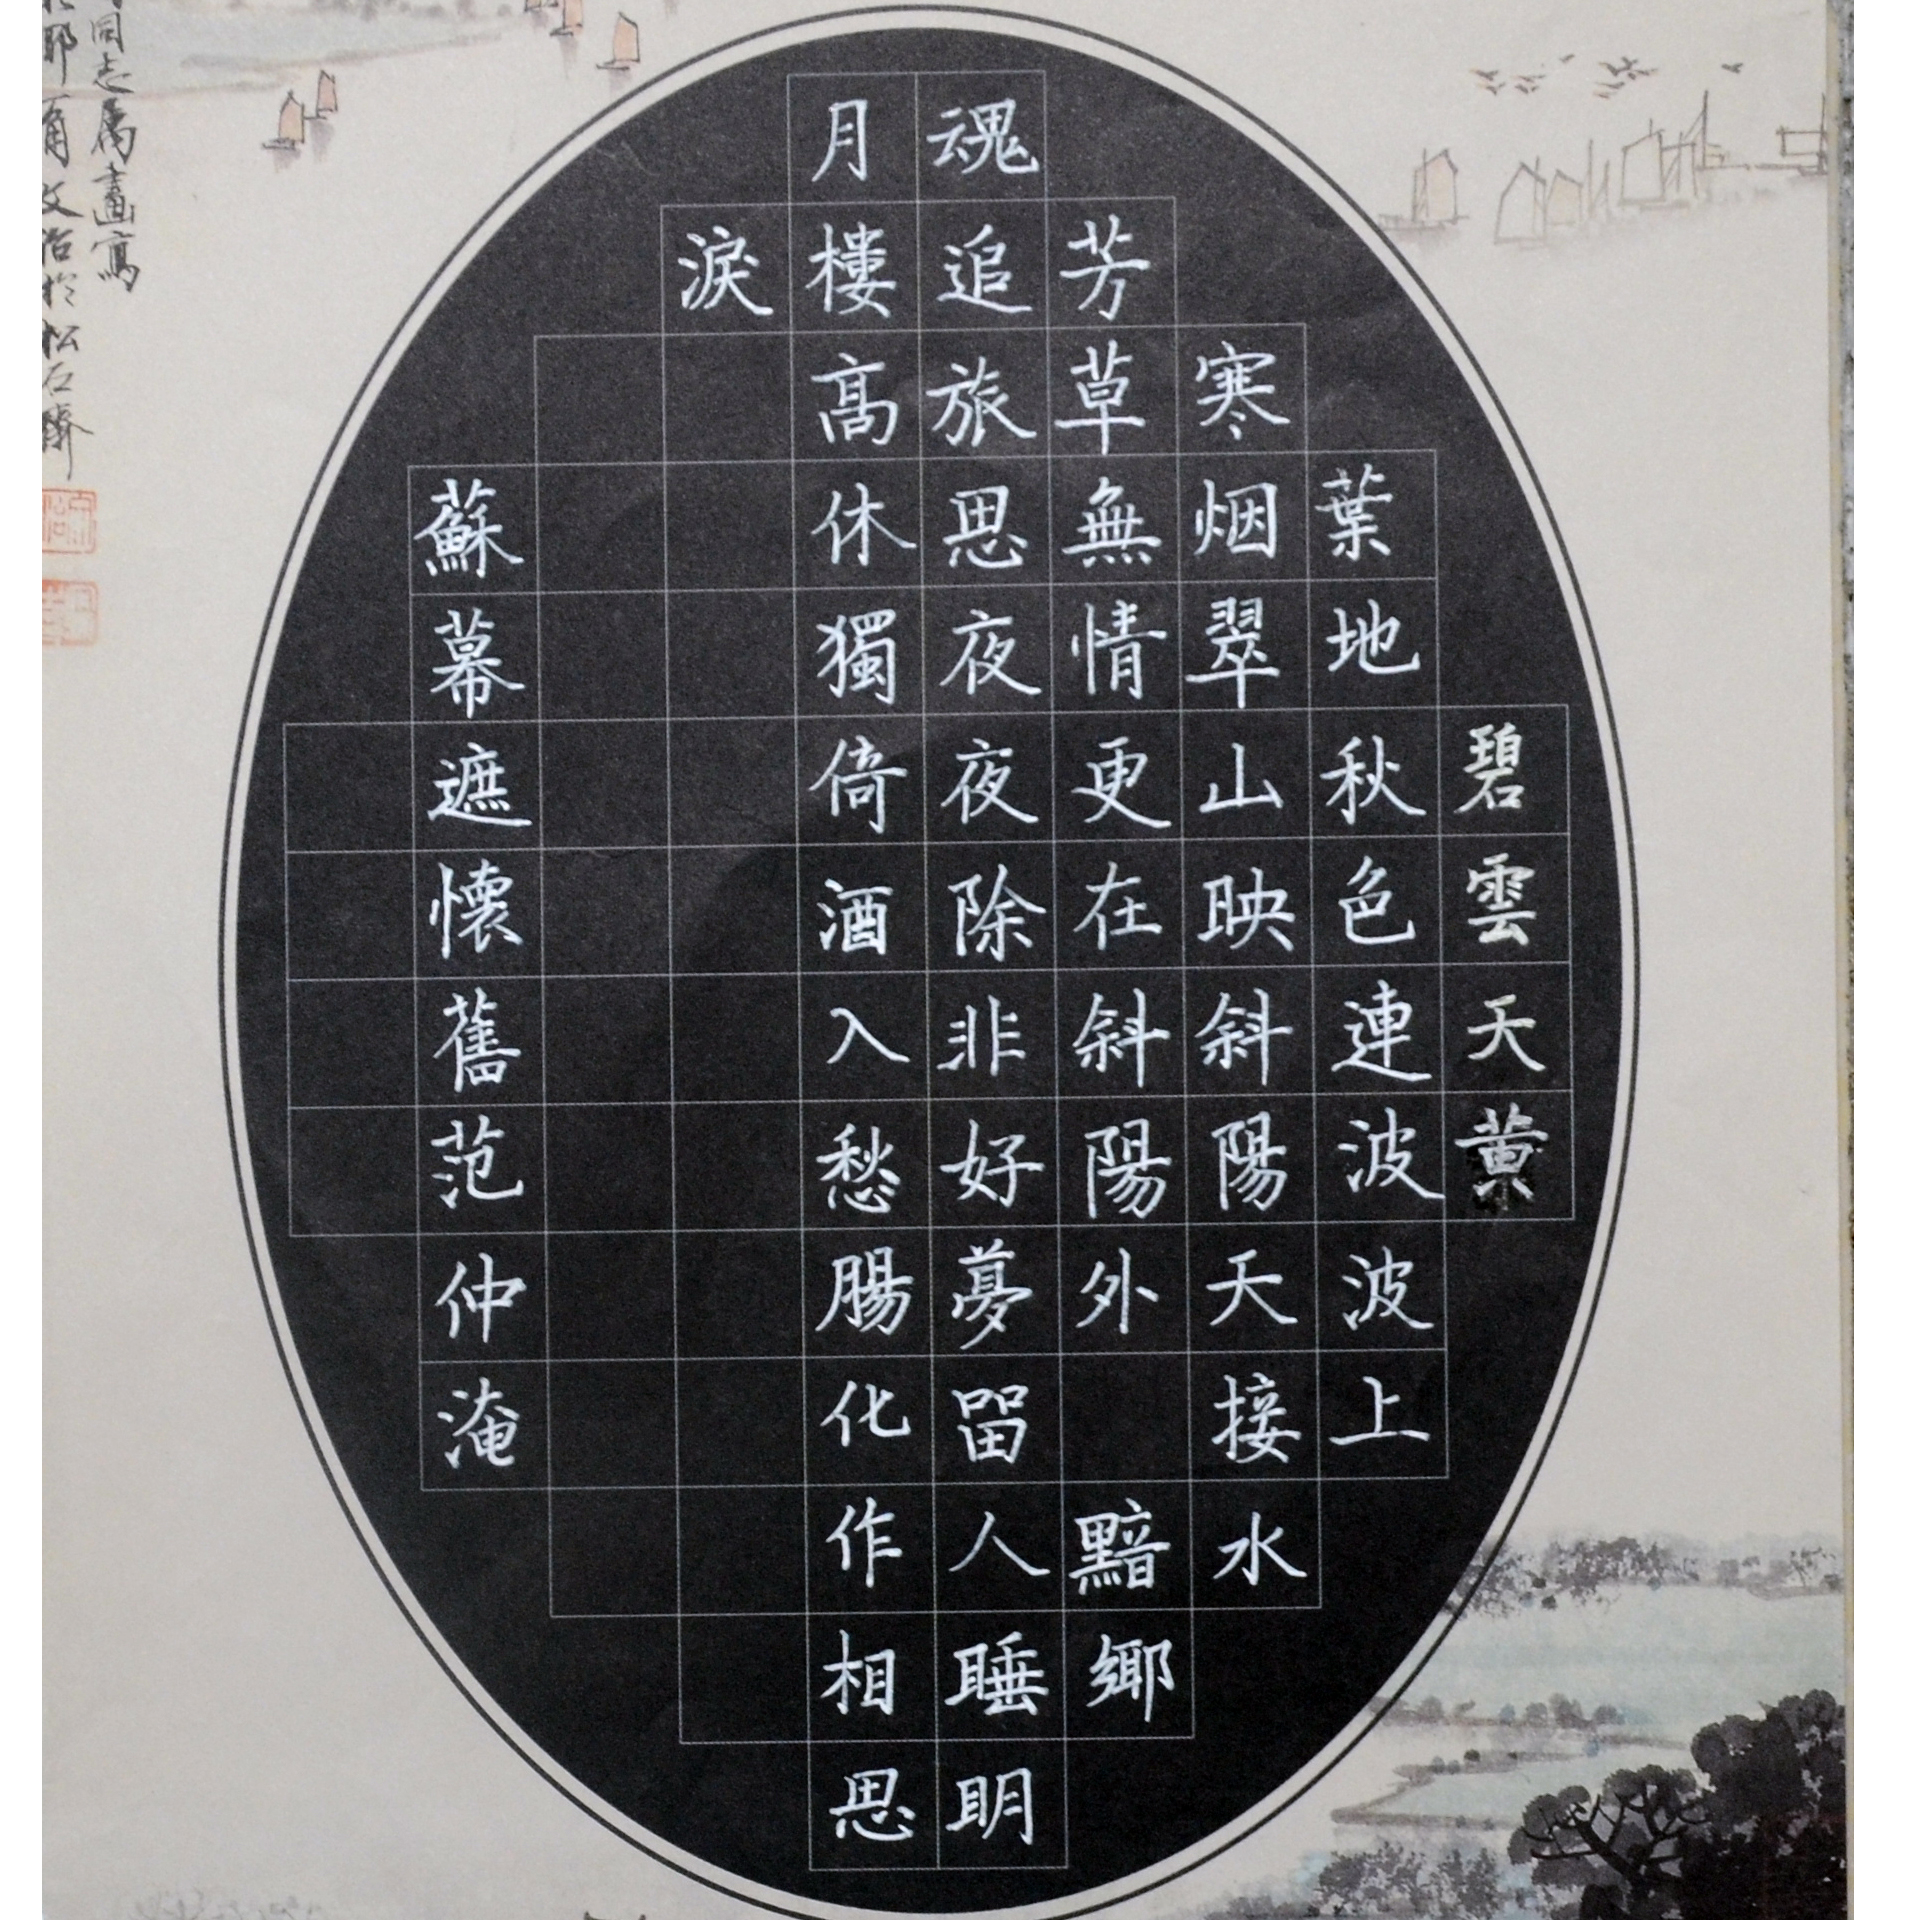 碧雲天黄
葉地秋色連波波上
寒烟翠山映斜陽天接水
芳草無情更在斜陽外 黯鄉
魂追旅思夜夜除非好夢留人睡明
月樓高休獨倚酒入愁腸化作相思
淚
蘇幕遮懷舊范仲淹
同志屬畫寫
文治於松石齋